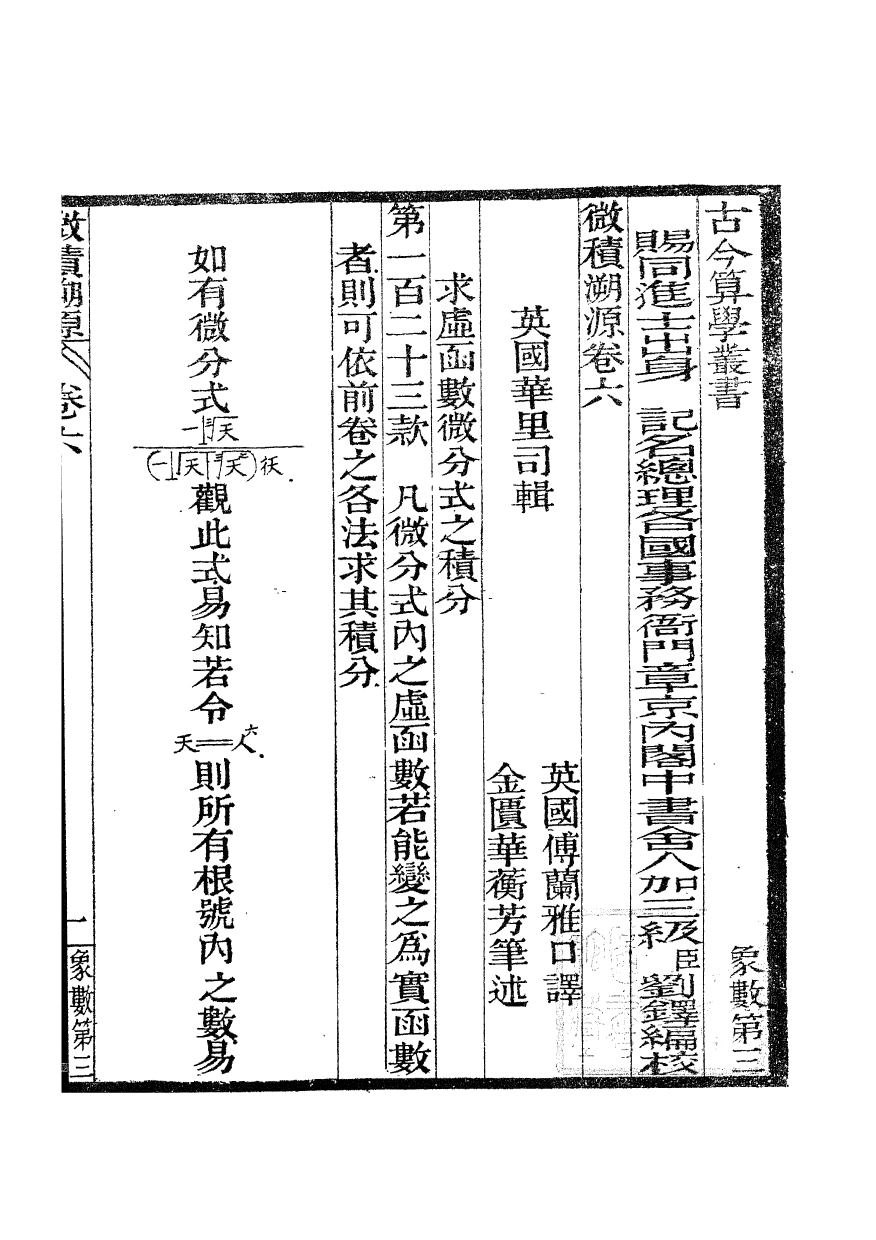 古今算學叢書
象數第三
賜同進士出身　記名總理各國事務衙門章京內閣中書舍人加三級臣劉鐸編校
微積溯源卷六
英國華里司輯
英國傅蘭雅口譯
金匱華蘅芳筆述
求虛函數微分式之積分
第一百二十三款　凡微分式內之虛函數若能變之爲實函數
者則可依前卷之各法求其積分
如有微分式
觀此式易知若令天＝人六則所有根號內之數易
微積溯源　卷六
一
象數第三